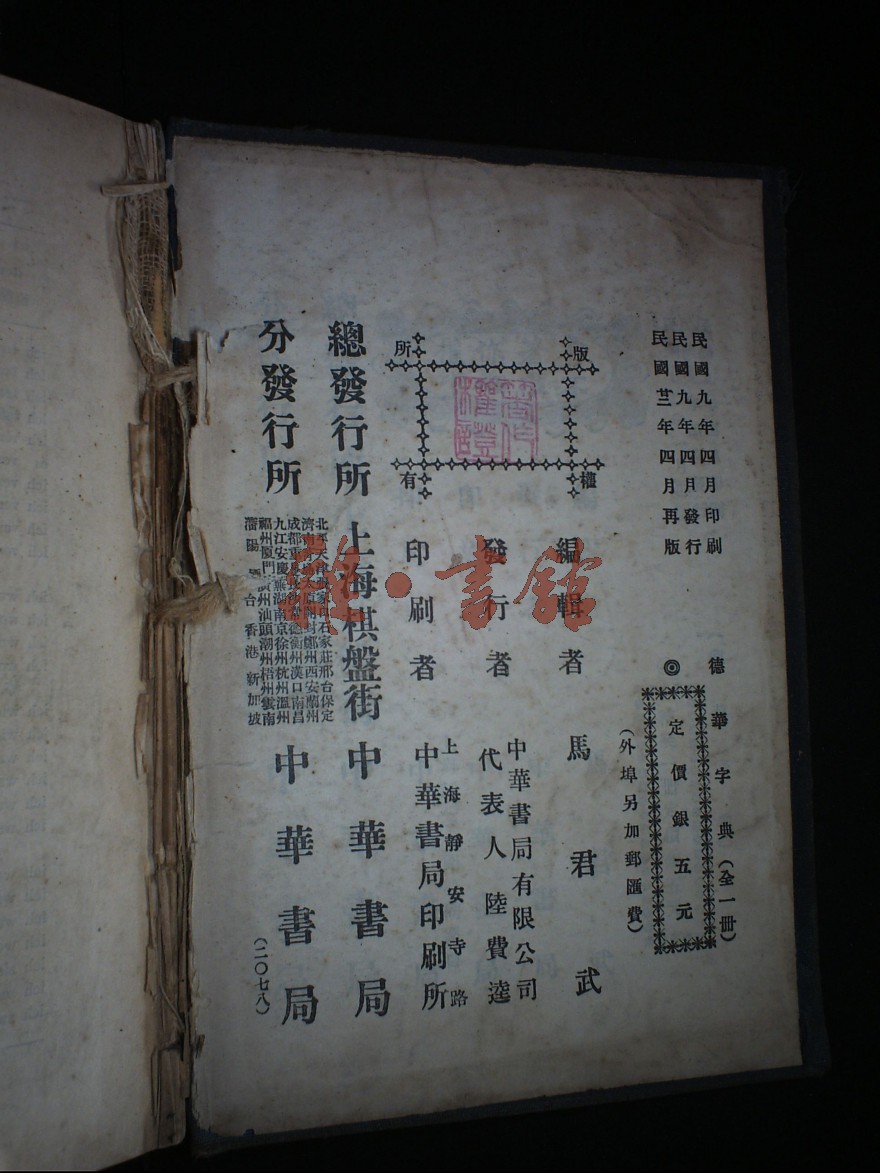 民國九年四月印刷
民國九年四月發行
民國廿三年四月再版
德華字典（全一冊）
◎定價銀五元
（外埠另加郵匯費）
版權所有
著作權證
編輯者 馬君武
發行者 中華書局有限公司
代表人 陸費逵
印刷者 上海靜安寺路
中華書局印刷所
總發行所 上海棋盤街 中華書局
分發行所
石家莊邢台保定
開封鄭州西安蘭州
衡州漢口南昌
九江安慶蕪湖南京徐州杭州溫州
福州廈門廣州汕頭潮州梧州雲南
台香港新加坡
中華書局
（二〇七八）
書館